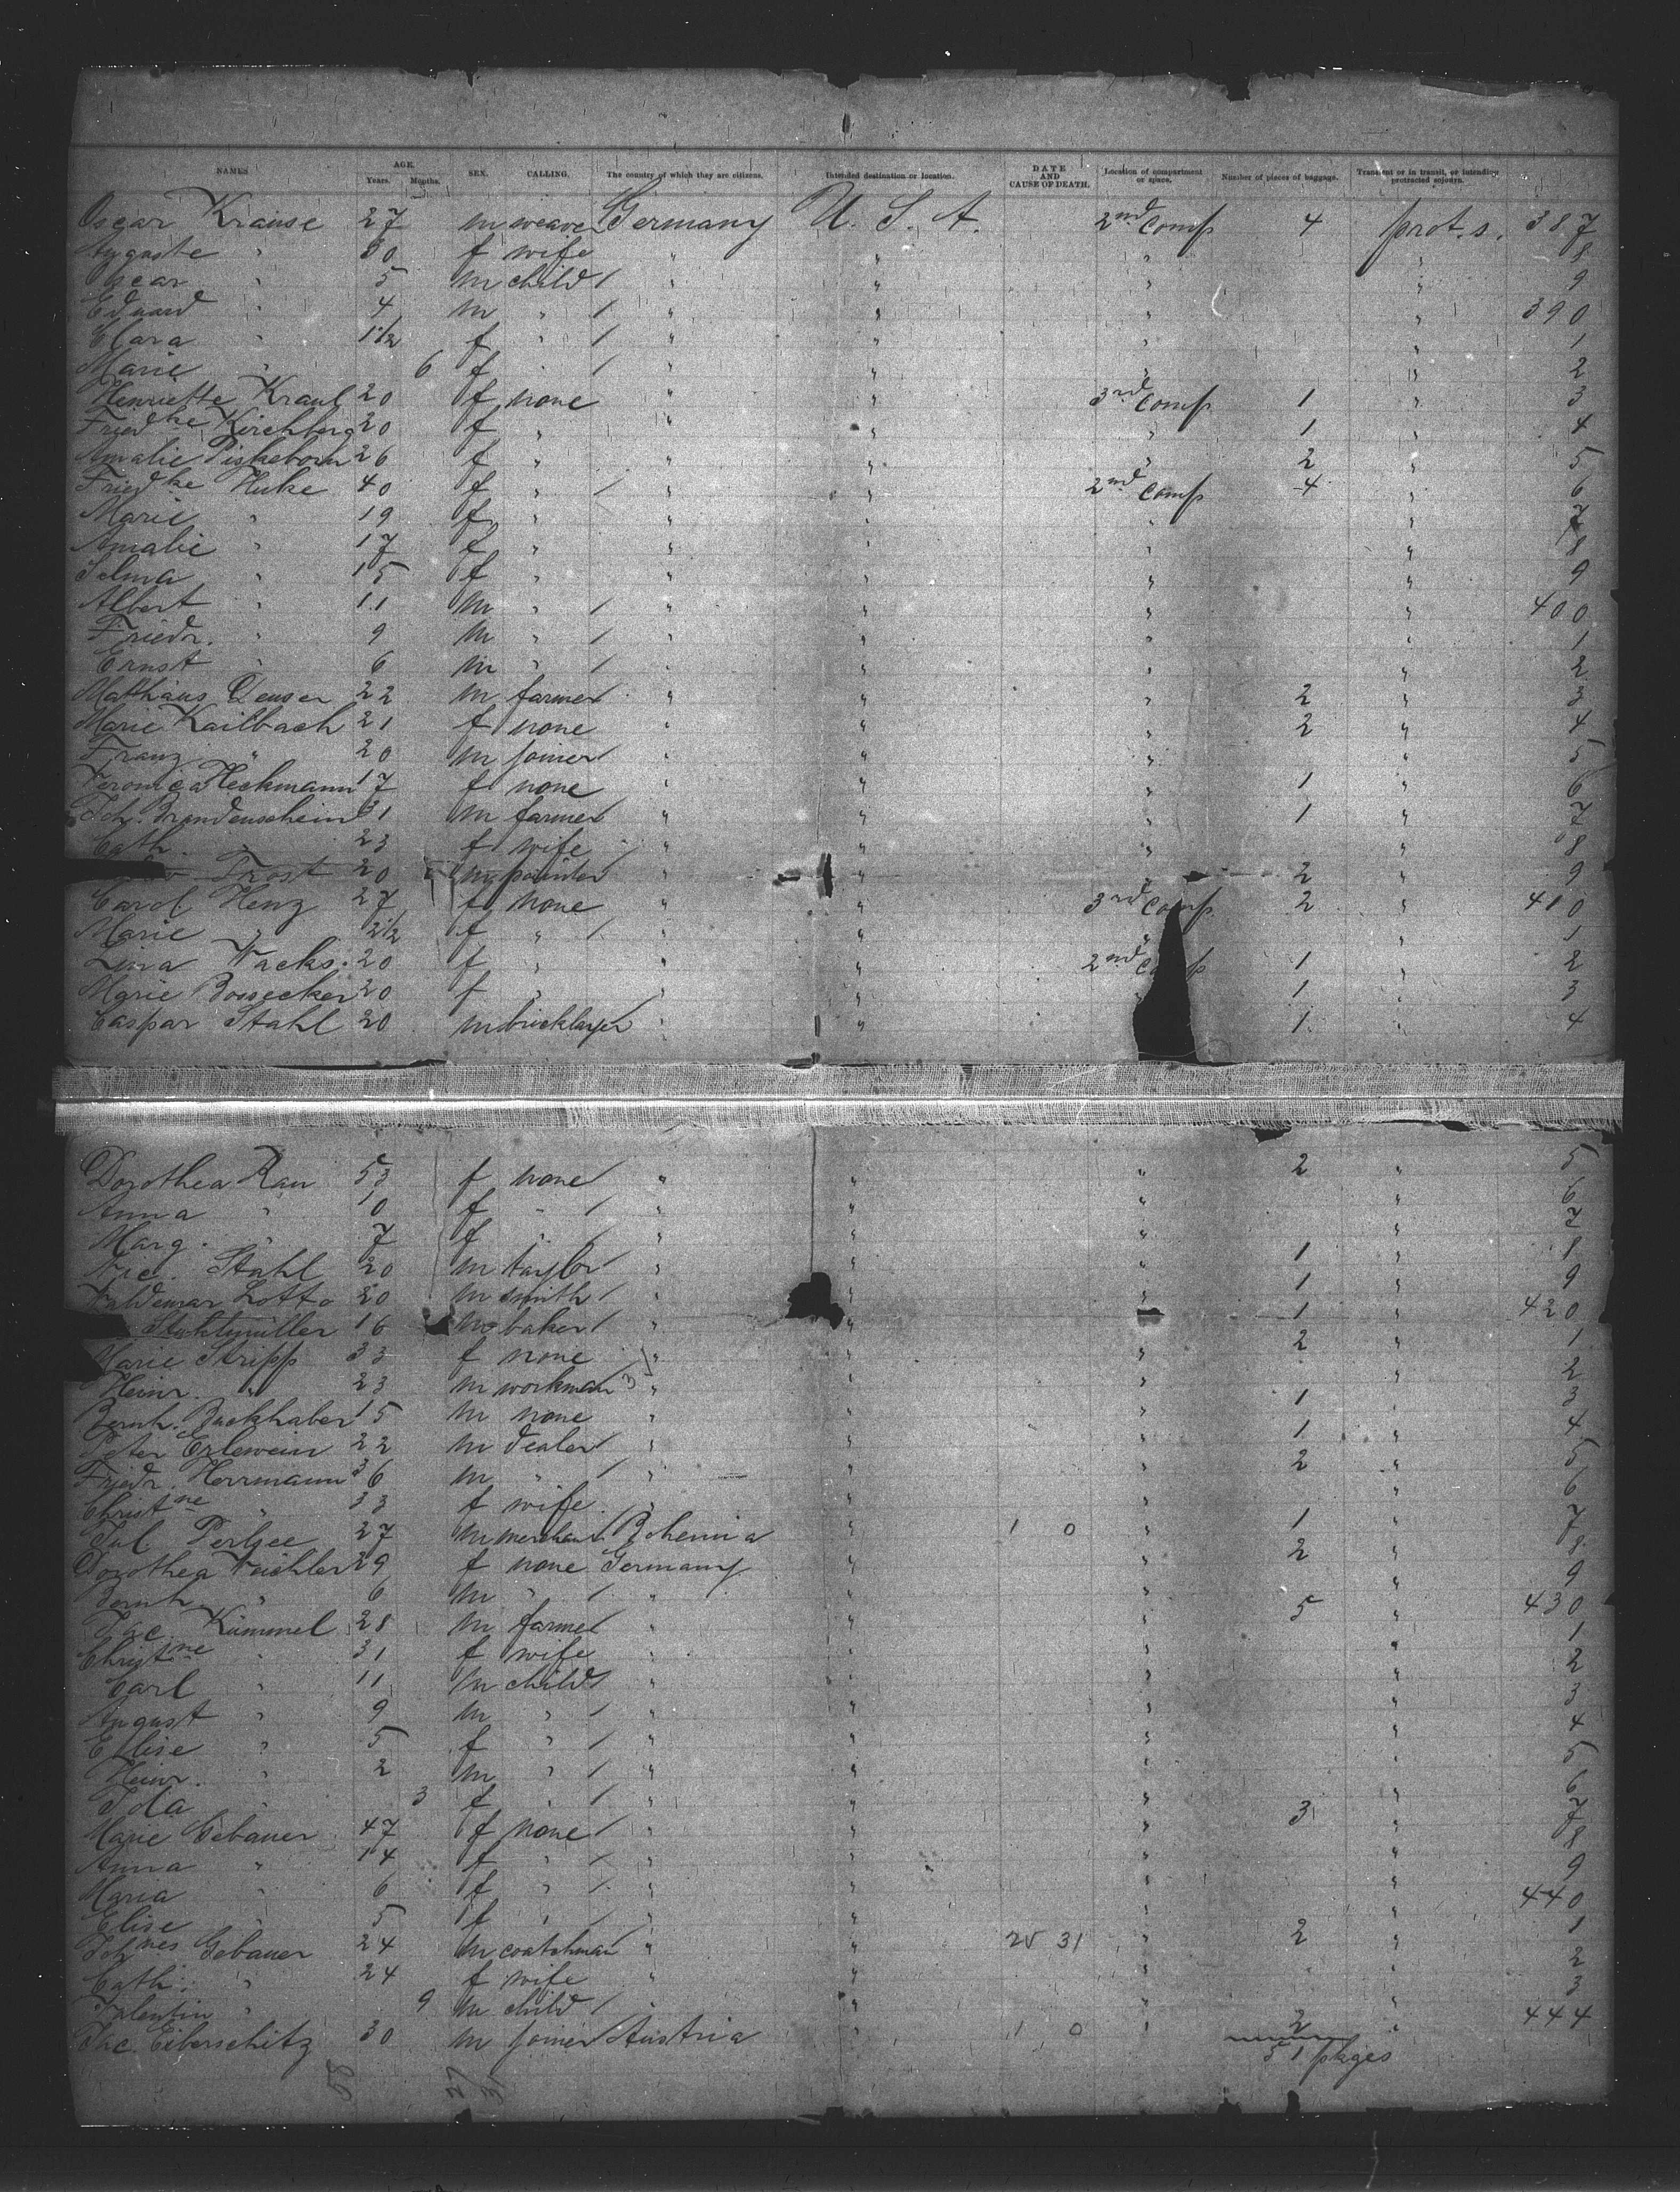 NAMES AGE. Years. Months. SEX. CALLING. The country of which they are citizens. Intended destination or location. DATE AND CAUSE OF DEATH. Location of compartment or space. Number of pieces of baggage. Transient or in transit, or intending protracted sojourn.
Oscar Krause 27 m weaver Germany U. S. A. 2nd comp 4 prot. s. 387
Auguste " 30 f wife " " " " 8
Oscar " 5 m child " " " " 9
Eduard " 4 m " " " " " 390
Clara " 1 1/2 f " " " " " 1
Marie " 6 f " " " " " 2
Henriette Kraul 20 f none " " 3rd comp 1 " 3
Friedke Kirchberg 20 f " " " " 1 " 4
Amalie Piskeborn 26 f " " " " 2 " 5
Friedke Huke 40 f " " " 2nd comp 4 " 6
Marie " 19 f " " " " " 7
Amalie " 17 f " " " " " 8
Selma " 15 f " " " " " 9
Albert " 11 m " " " " " 400
Friedr. " 9 m " " " " " 1
Ernst " 6 m " " " " " 2
Matthäus Denser 22 m farmer " " " 2 " 3
Marie Kailbach 21 f none " " " 2 " 4
Franz " 20 m joiner " " " " 5
Veronica Heckmann 17 f none " " " 1 " 6
Joh. Brandenschein 31 m farmer " " " 1 " 7
Cath. 23 f wife " " " " 8
Frost 20 m painter " " 2 " 9
Carol Henz 27 f none " " 3rd comp 2 " 410
Marie " 2 1/2 f " " " " " 1
Lina Wacks. 20 f " " " 2nd comp 1 " 2
Marie Bossecker 20 f " " " " 1 " 3
Caspar Stahl 20 m bricklayer " " 1 " 4
Dorothea Rau 53 f none " " " 2 " 5
Anna " 10 f " " " " " 6
Marg. " 7 f " " " " " 7
Nic. Stahl 20 m taylor " " " 1 " 8
Waldemar Lotto 20 m smith " " " 1 " 9
Stahlmüller 16 m baker " " 1 " 420
Marie Stripp 33 f none " " " 2 " 1
Heinr. " 23 m workman " " " " 2
Bernh. Backhaber 15 m none " " " 1 " 3
Peter Erlewein 22 m dealer " " " 1 " 4
Friedr. Herrmann 36 m " " " " 2 " 5
Christne " 33 f wife " " " " 6
Jul Perlsee 27 m merchant Bohemia " 1 0 " 1 " 7
Dorothea Veichler 29 f none Germany " " 2 " 8
Bernh. " 6 m " " " " " 9
Jac. Kümmel 28 m farmer " " " 5 " 430
Christne " 31 f wife " " " " 1
Carl " 11 m child " " " " 2
August " 9 m " " " " " 3
Ellise " 5 f " " " " " 4
Heinr. " 2 m " " " " " 5
Ida " 3 f " " " " " 6
Marie Gebauer 47 f none " " " 3 " 7
Anna " 14 f " " " " " 8
Maria " 6 f " " " " " 9
Elise " 5 f " " " " " 440
Johnes Gebauer 24 m coatchman " " " 2 " 1
Cath. " 24 f wife " " " " 2
Valentin " 9 m child " " " " 3
Jac. Eiberschitz 30 m joiner Austria " 1 0 " 2 " 444
51 pkges